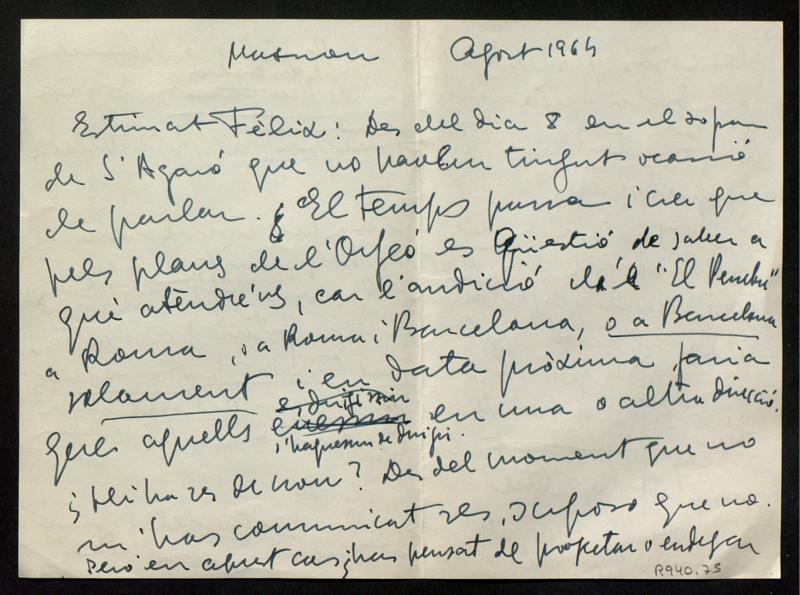 Masnou Agost 1964
Estimat Fèlix: Des del dia 8 en el sopar
de S'Agaró que no havíem tingut ocasió
de parlar. El temps passa i crec que
pels plans de l'Orfeó es qüestió de saber a
què atendre'ns, car l'audició de "El Pessebre"
a Roma, o a Roma i Barcelona, o a Barcelona
solament i en data pròxima faria
que aquells s'haguessin de dirigir en una o altra direcció.
¿Hi ha res de nou? Des del moment que no
m'has comunicat res, suposo que no.
Però en aquest cas, ¿has pensat de projectar o endegar
R940.75